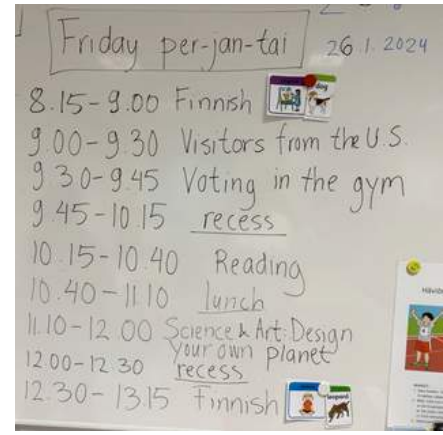 Friday per-jan-tai 26.1.2024
8.15-9.00 Finnish
dog
9.00-9.30 Visitors from the U.S.
9.30-9.45 Voting in the gym
9.45-10.15 recess
10.15-10.40 Reading
10.40-11.10 lunch
11.10-12.00 Science & Art: Design
your own planet
12.00-12.30 recess
12.30-13.15 Finnish
leopard